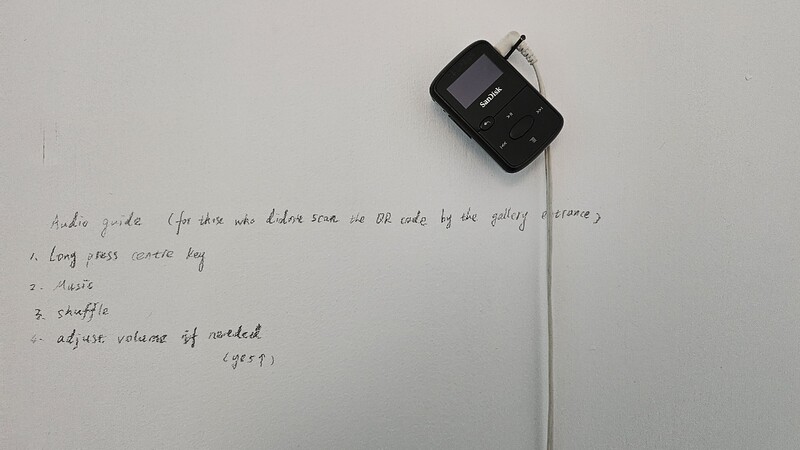 SanDisk
Audio guide (for those who didn't scan the QR code by the gallery entrance)
1. Long press centre key
2. Music
3. shuffle
4. adjust volume if needed
(yes↑)